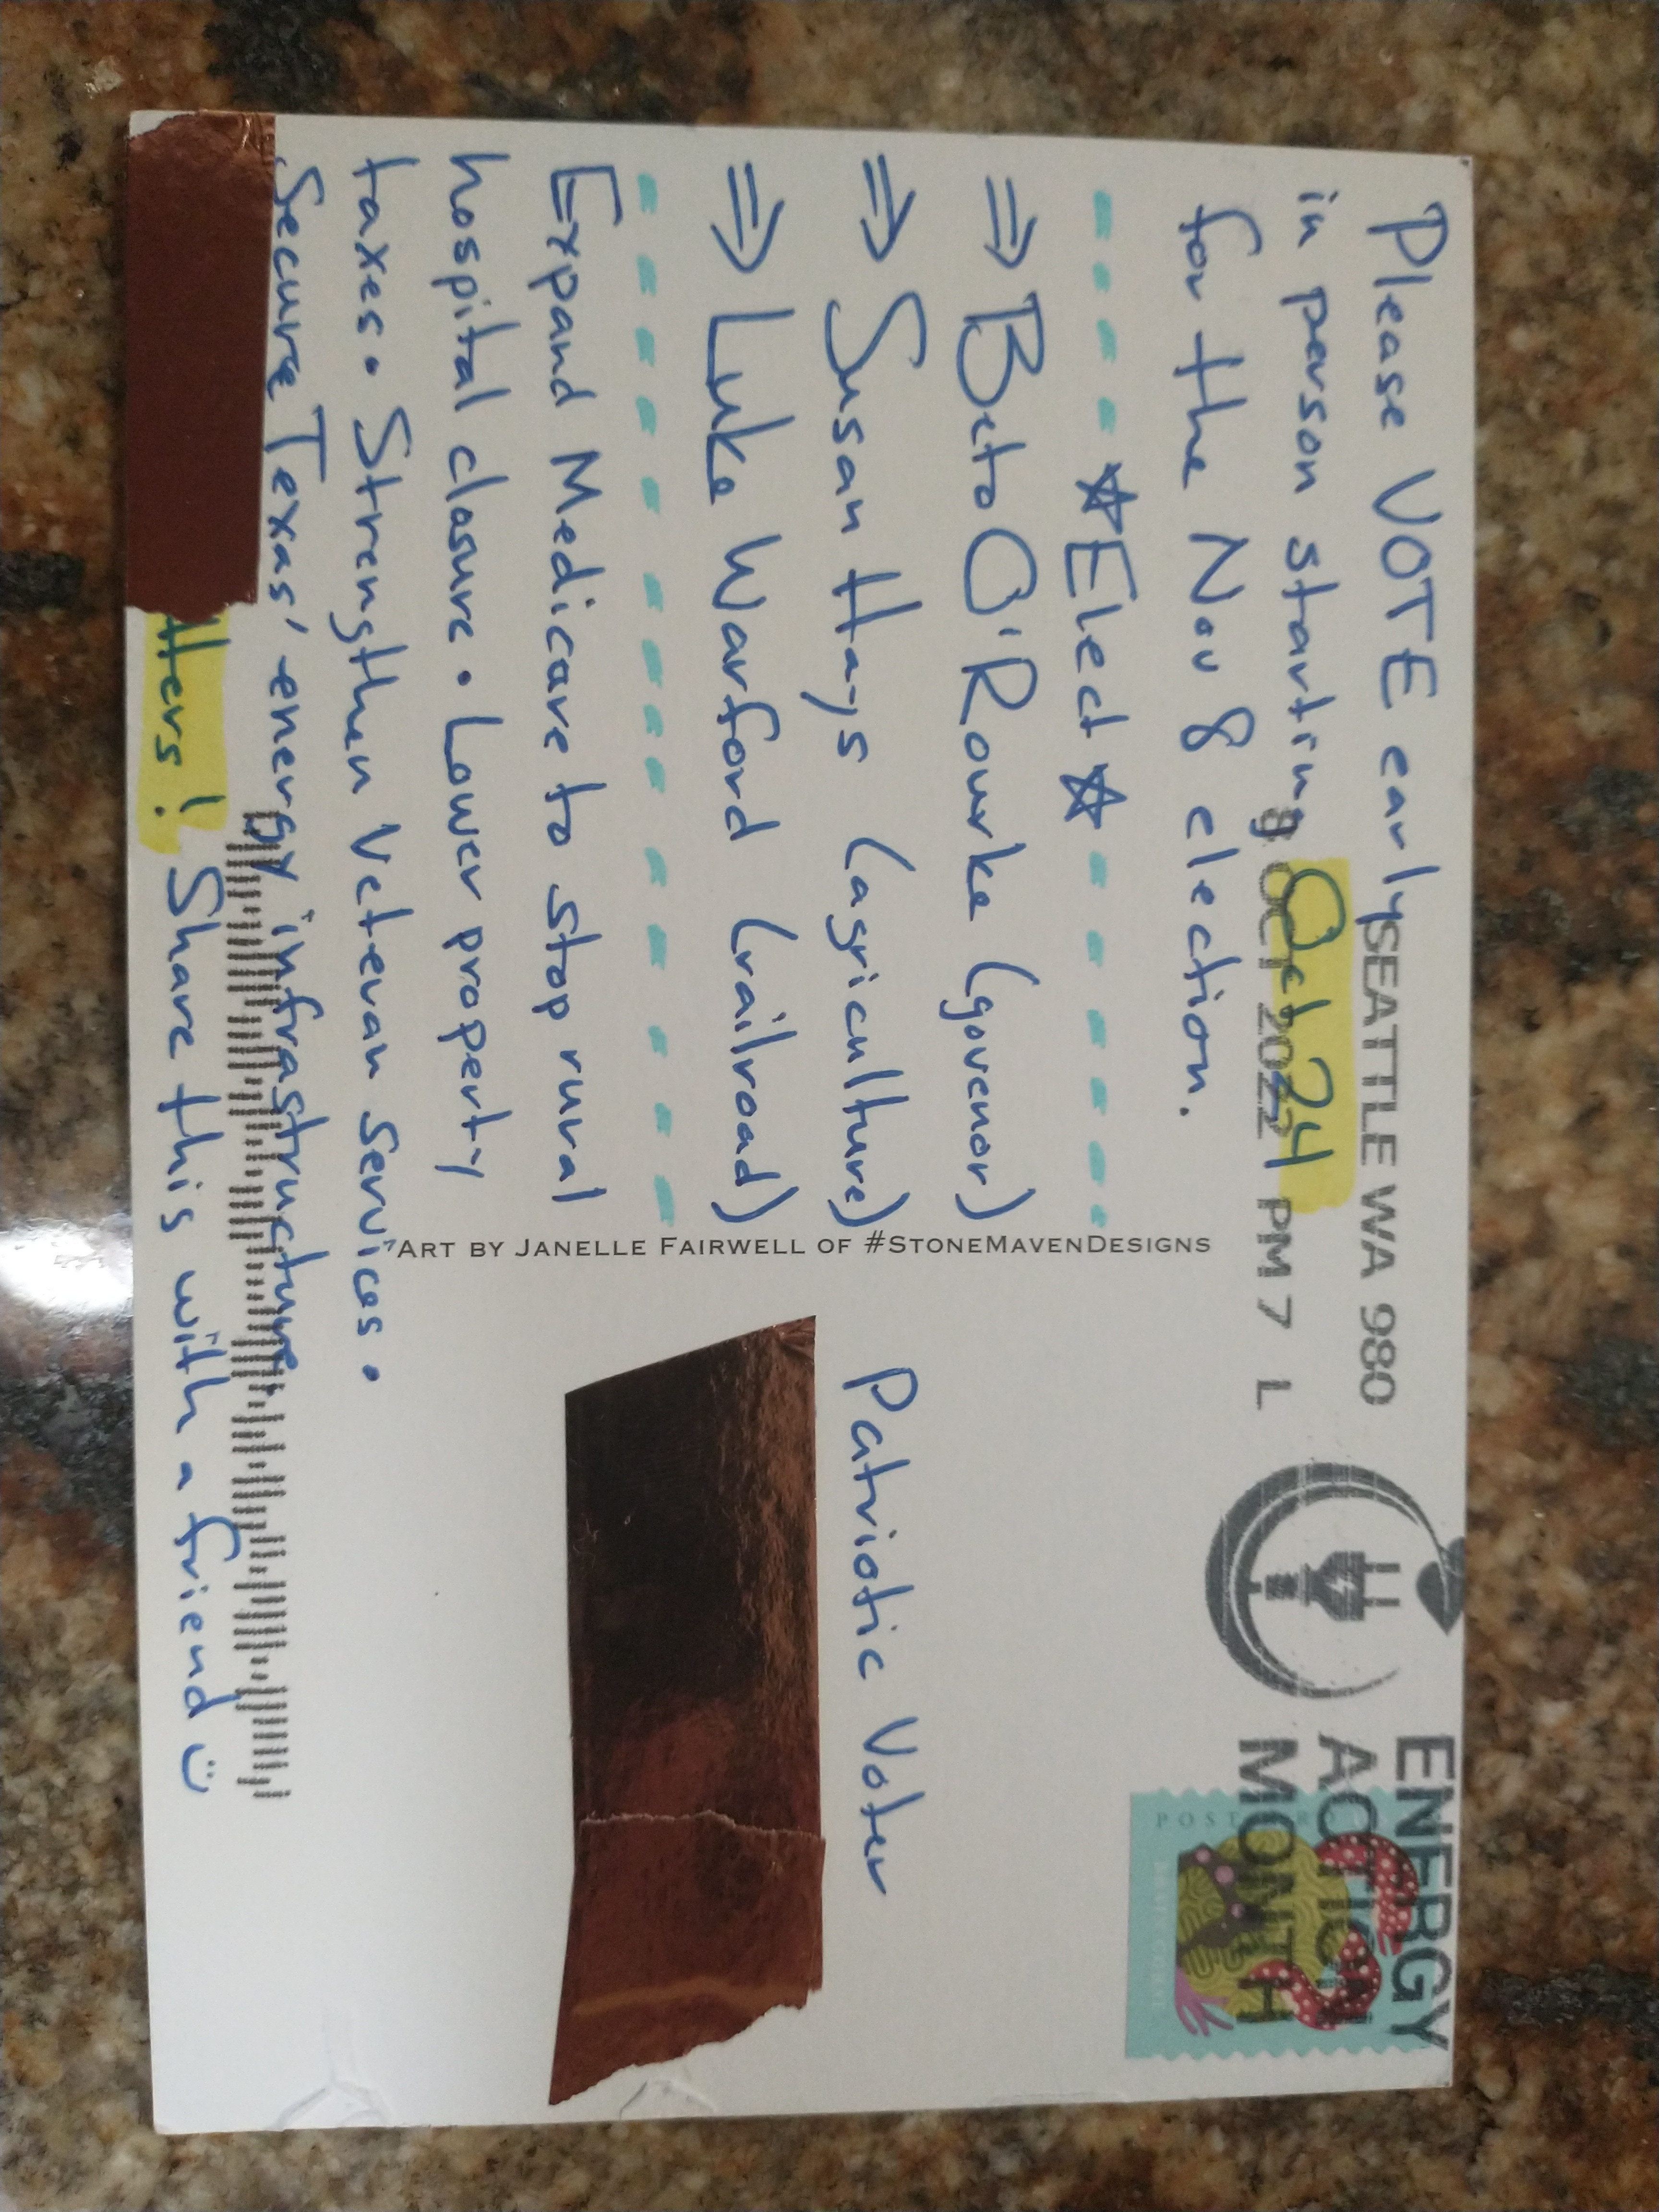 Please VOTE early
in person starting Oct 24
for the Nov 8 election.
☆ Elect ☆
⇒ Beto O'Rourke (govenor)
⇒ Susan Hays (agriculture)
⇒ Luke Warford (railroad)
Expand Medicare to stop rural
hospital closure • Lower property
taxes • Strengthen Veteran Services •
Secure Texas' energy infrastructure
tters! Share this with a friend ☺
ART BY JANELLE FAIRWELL OF #STONEMAVENDESIGNS
SEATTLE WA 980
9 OCT 2022 PM 7 L
ENERGY
ACTION
MONTH
Patriotic Voter